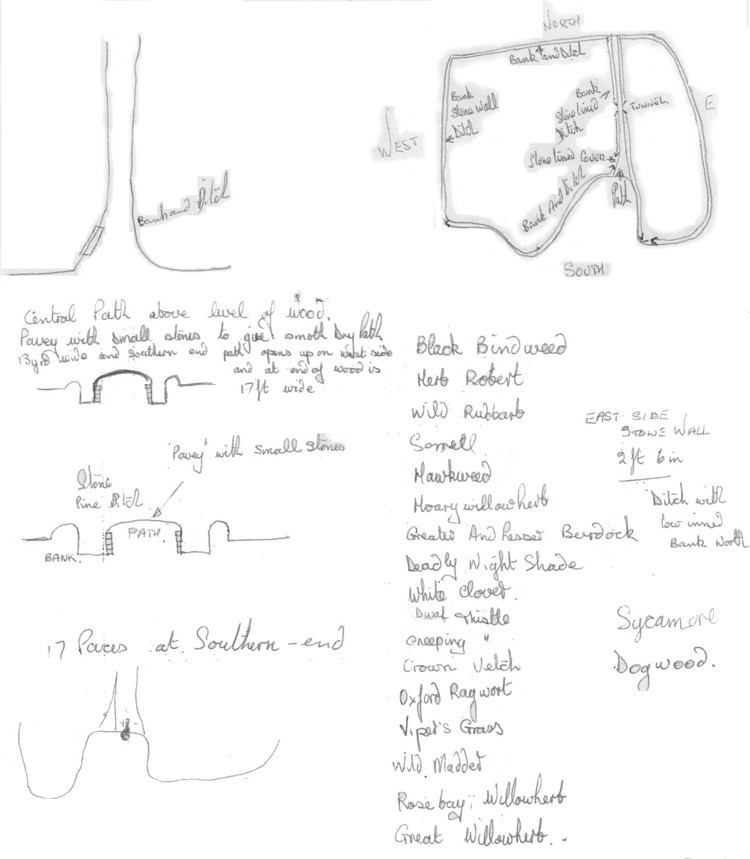 NORTH
Bank and Ditch
Bank
Stone Wall
Ditch
Bank
Stone lined
Ditch
TUNNEL
E
WEST
Stone lined COVER
Bank And Ditch
Path
SOUTH
Bank and Ditch
Central Path above level of wood.
Pavey with small stones to give smoth Dry Path
13yrd wide and southern end path opens up on west side
and at end of wood is
17ft wide
'Pavey' with small stones
Stone
Line Ditch
PATH.
BANK.
17 Paces at Southern-end
Black Bindweed
Herb Robert
Wild Rubbarb
Sorrell
Hawkweed
Hoary willowherb
Greater And Lesser Burdock
Deadly Night Shade
White Clover.
Dwaf Thistle
Creeping "
Crown Vetch
Oxford Ragwort
Viper's Grass
Wild Madder
Rosebay; Willowherb
Great Willowherb.
EAST SIDE
STONE WALL
2 ft 6 in
Ditch with
low inned
Bank North
Sycamore
Dogwood.